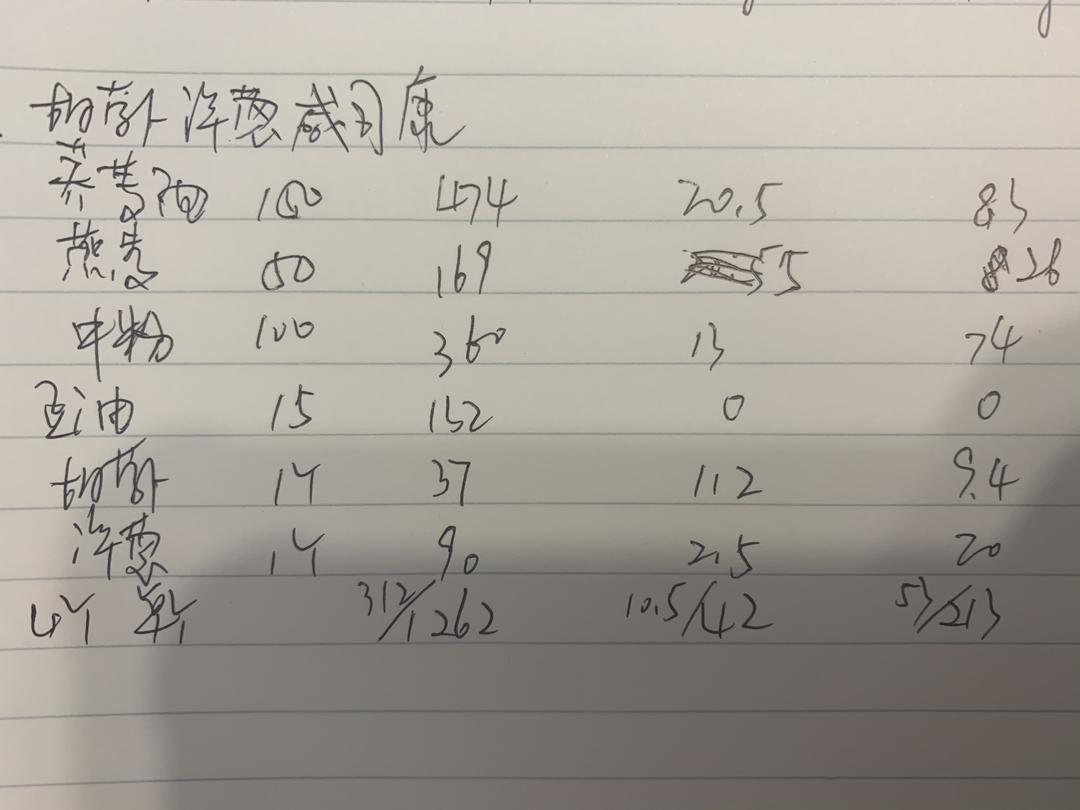 胡萝卜洋葱咸司康
荞麦面 150 474 20.5 83
燕麦 50 169 5.5 26
中粉 100 360 13 74
豆油 15 132 0 0
胡萝卜 1个 37 1.2 9.4
洋葱 1个 90 2.5 20
4个 312/1262 10.5/42 53/213